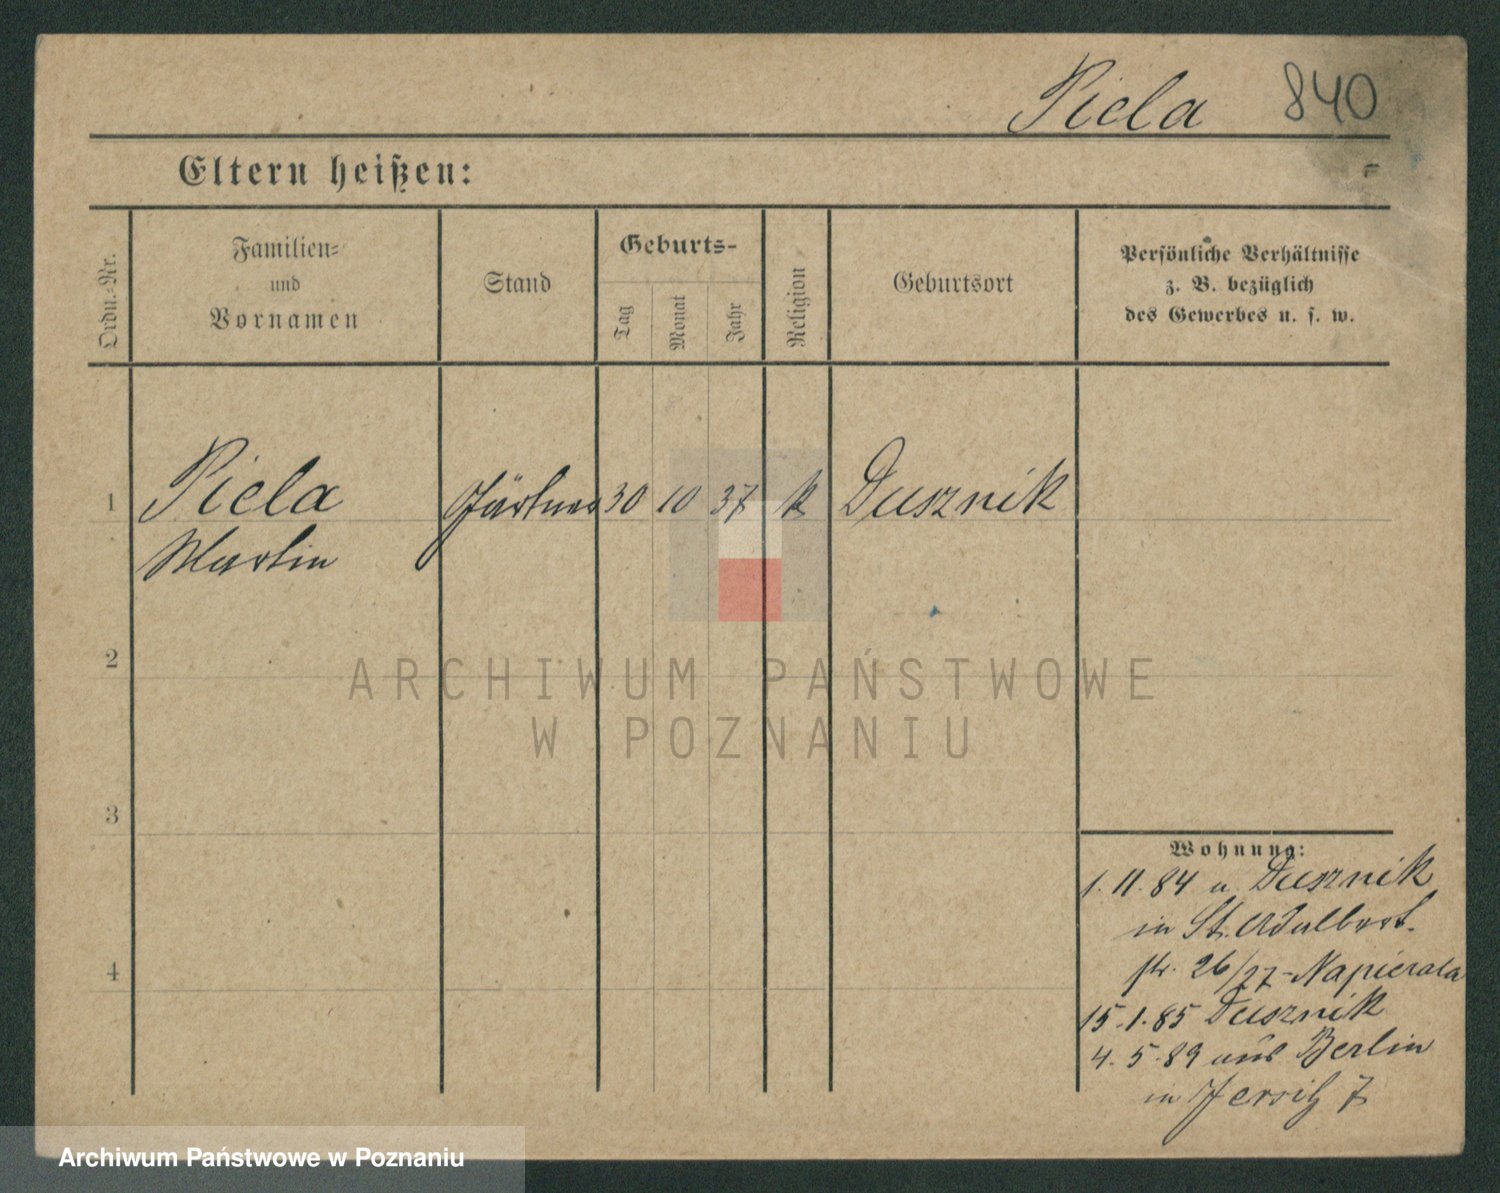 Piela 840
Eltern heißen:
Ordn.-Nr.
Familien-
und
Vornamen
Stand
Geburts-
Tag
Monat
Jahr
Religion
Geburtsort
Persönliche Verhältnisse
z. B. bezüglich
des Gewerbes u. s. w.
1 Piela Gärtner 30 10 37 k Dusznik
Martin
2
3
4
Wohnung:
1. 11. 84 a. Dusznik
in St. Adalbert-
str. 26/27 - Napierala
15. 1. 85 Dusznik
4. 5. 89 aus Berlin
in Jersitz 7
ARCHIWUM PAŃSTWOWE
W POZNANIU
Archiwum Państwowe w Poznaniu